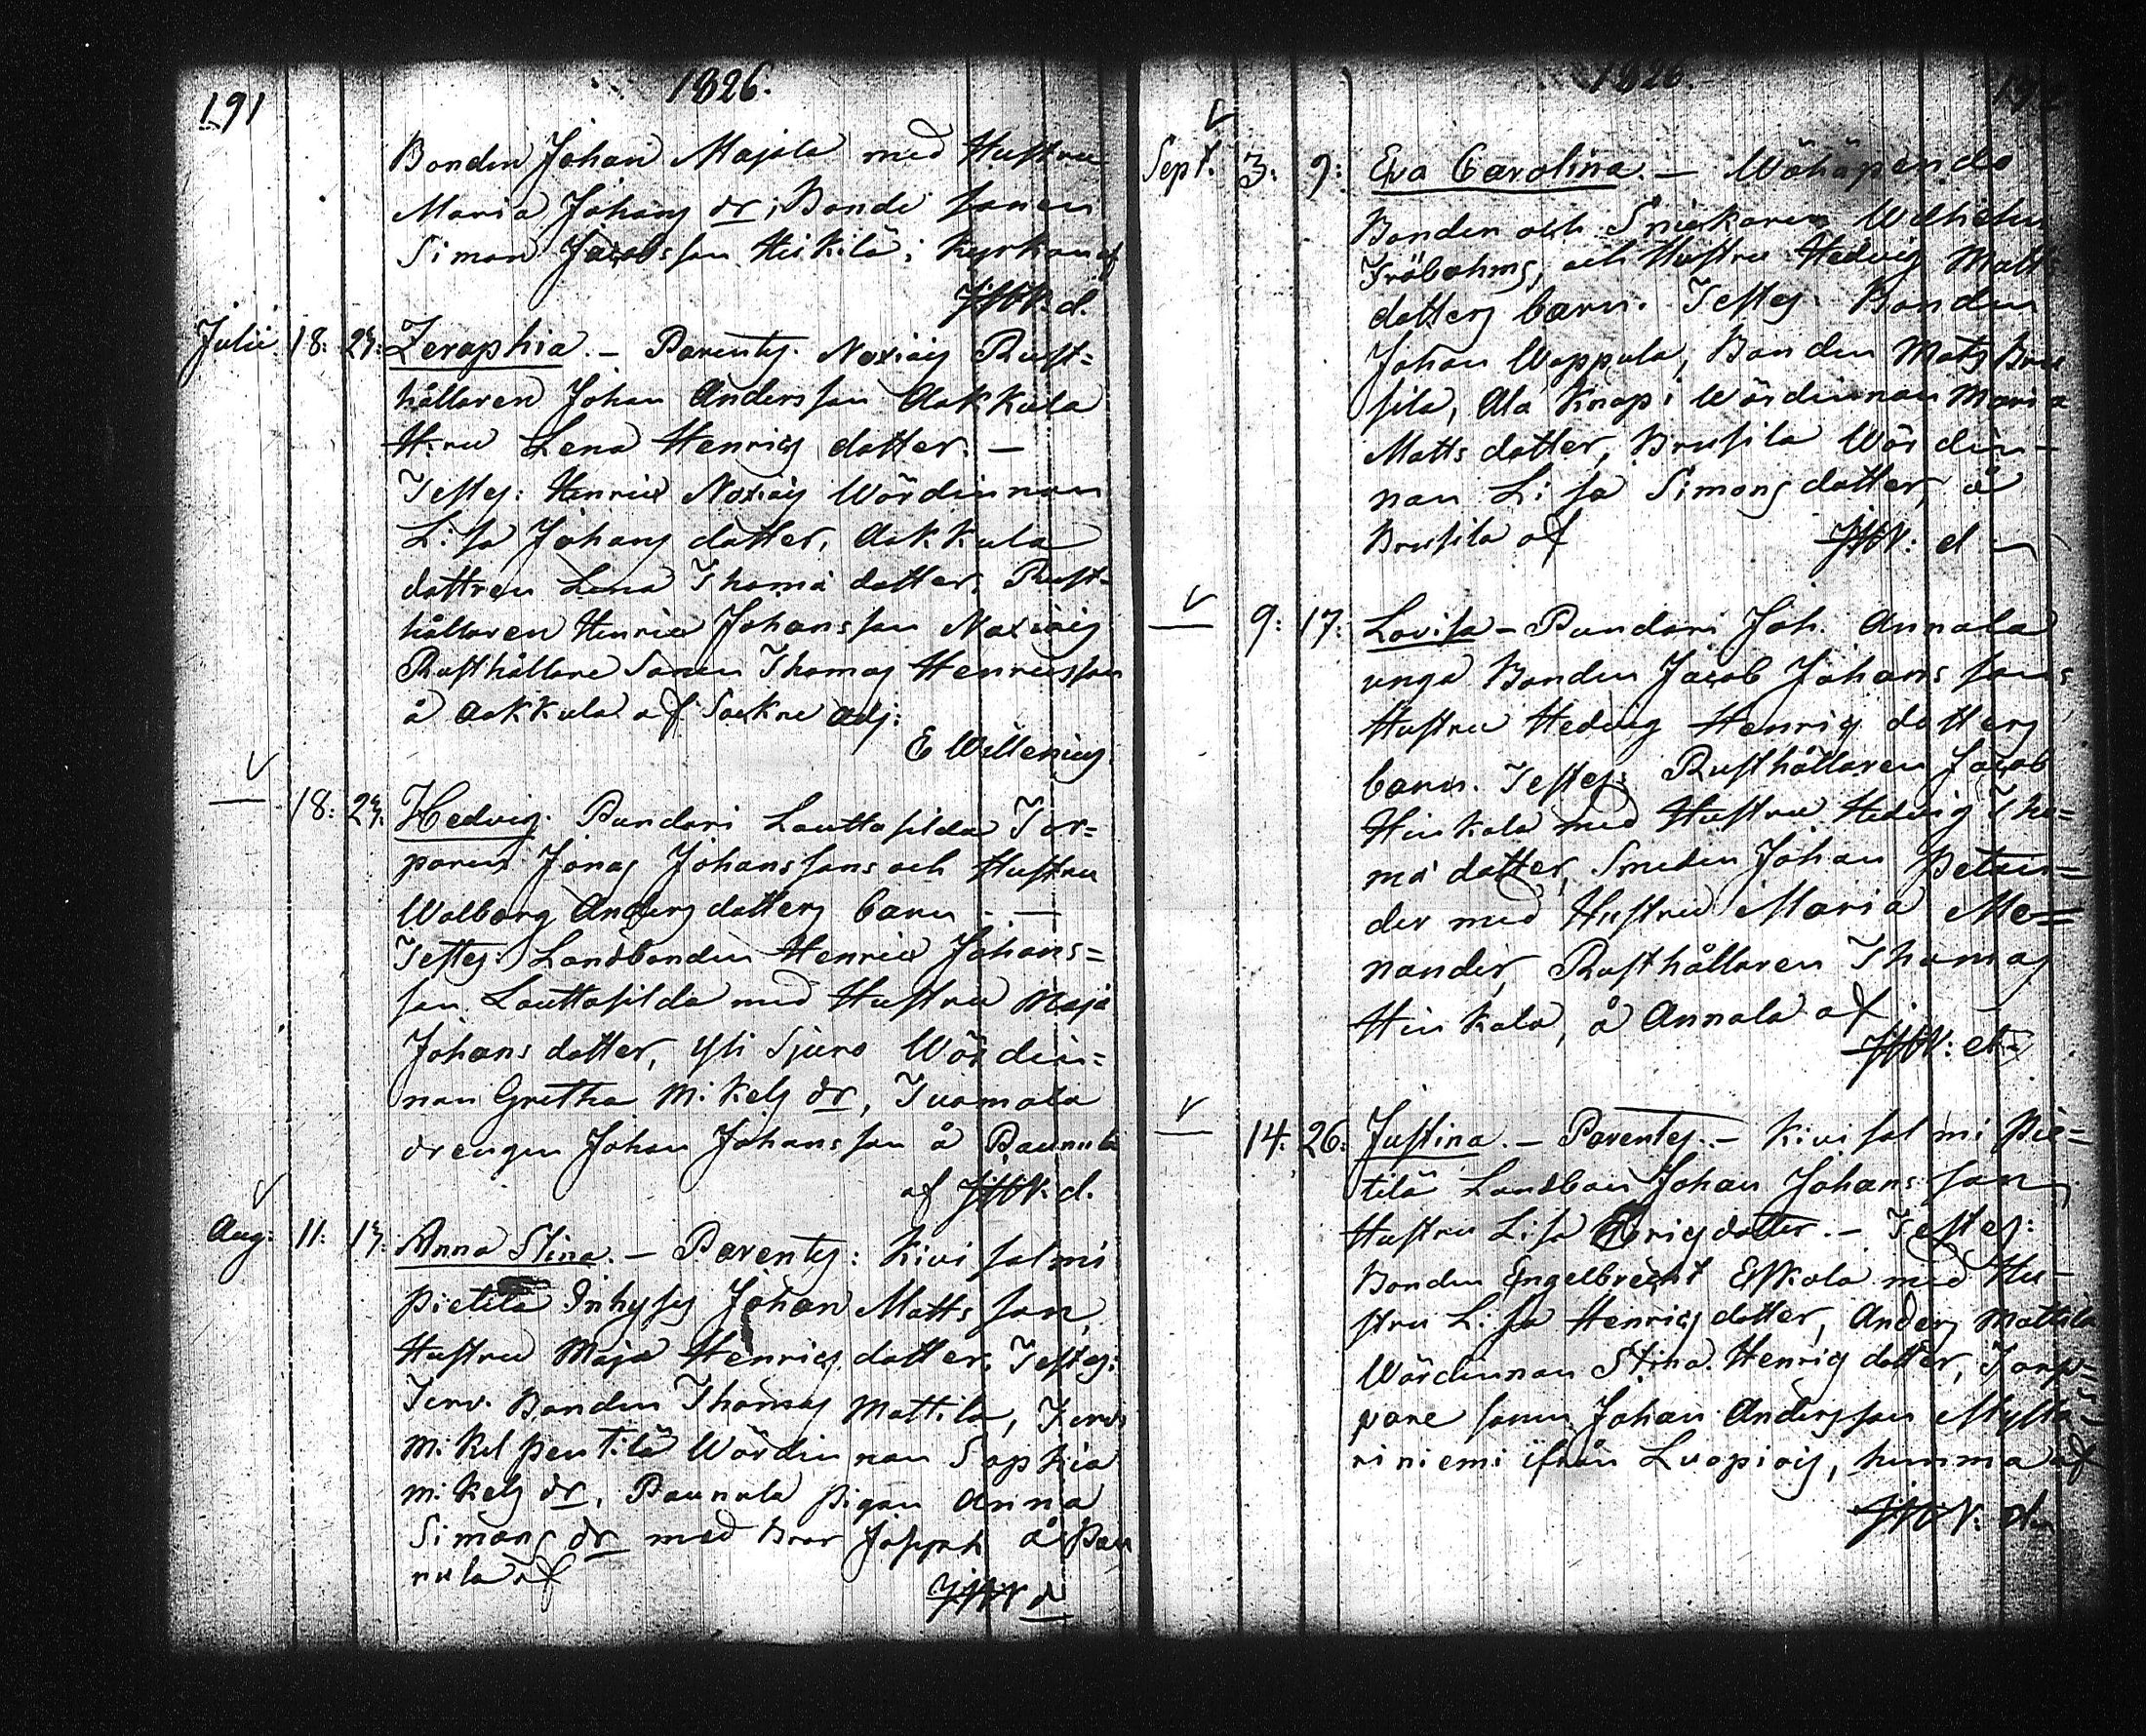 191
1826.
Bonden Johan Majala med Hustru
Maria Johans dr; Bonde sonen
Simon Jacobsson Heikilä i Kyrkan af
JHV. d.
Julii 18: 23: Zeraphia. - Parentes. Noxiais Rust=
hållaren Johan Andersson Aakkula
H:ru Lena Henrics dotter. -
Testes: Henric Noxiais Wördinnan
Lisa Johans dotter, Aakkula
dottren Lena Thomæ dotter, Rust-
hållaren Henric Johansson Noxiais
Rusthållare Sonen Thomas Henricsson
å Aakkula af Sockne Adj:
E Willenius.
— 18: 23: Hedvig. Pundari Lauttasilda Tor=
paren Jonas Johanssons och Hustru
Walborg Anders dotters barn. —
Testes: Landbonden Henric Johans=
son Lauttasilda med Hustru Maja
Johans dotter, Yli Sjuro Wördin=
nan Gretha Mikels dr, Tuomala
drengen Johan Johansson å Paunula
af JHV. d.
Aug: 11: 13: Anna Stina. - Parentes: Kivisalmi
Pietilä Inhyses Johan Mattsson,
Hustru Maja Henrics dotter. Testes:
Terv. Bonden Thomas Mattila, Terv.
Mikel Pentilä Wördinnan Sophia
Mikels dr, Paunula pigan Anna
Simons dr med Bror Joseph å Pau
nula af
JHV d
1826.
Sept. 3: 9: Eva Carolina. - Wähäpendo
Bonden och Snickaren Wilhelm
Fröbohms, och Hustru Hedvig Matts
dotters barn. Testes. Bonden
Johan Wappula, Bonden Mats Bru
sila, Ala Knapi Wördinnan Maria
Matts dotter, Brusila Wördin-
nan Lisa Simons dotter, å
Brusila af JHV: d
— 9: 17: Lovisa - Pundari Joh. Annala
unga Bonden Jacob Johanssons
Hustru Hedvig Henrics dotters
barn. Testes: Rusthållaren Jacob
Hinkala med Hustru Hedvig Tho=
mæ dotter, Smeden Johan Petan=
der med Hustru Maria Me=
nander, Rusthållaren Thomas
Hinkala, å Annala af
JHV: d
— 14: 26: Justina. - Parentes. - Kivisalmi Pie=
tilä Landbon Johan Johansson,
Hustru Lisa dotter. - Testes:
Bonden Engelbrecht Eskola med Hu-
stru Lisa Henrics dotter, Anders Mattila
Wördinnan Stina Henrics dotter, Torp-
pare sonen Johan Andersson Myllä-
riniemi ifrån Luopiois, hemma af
JHV: d